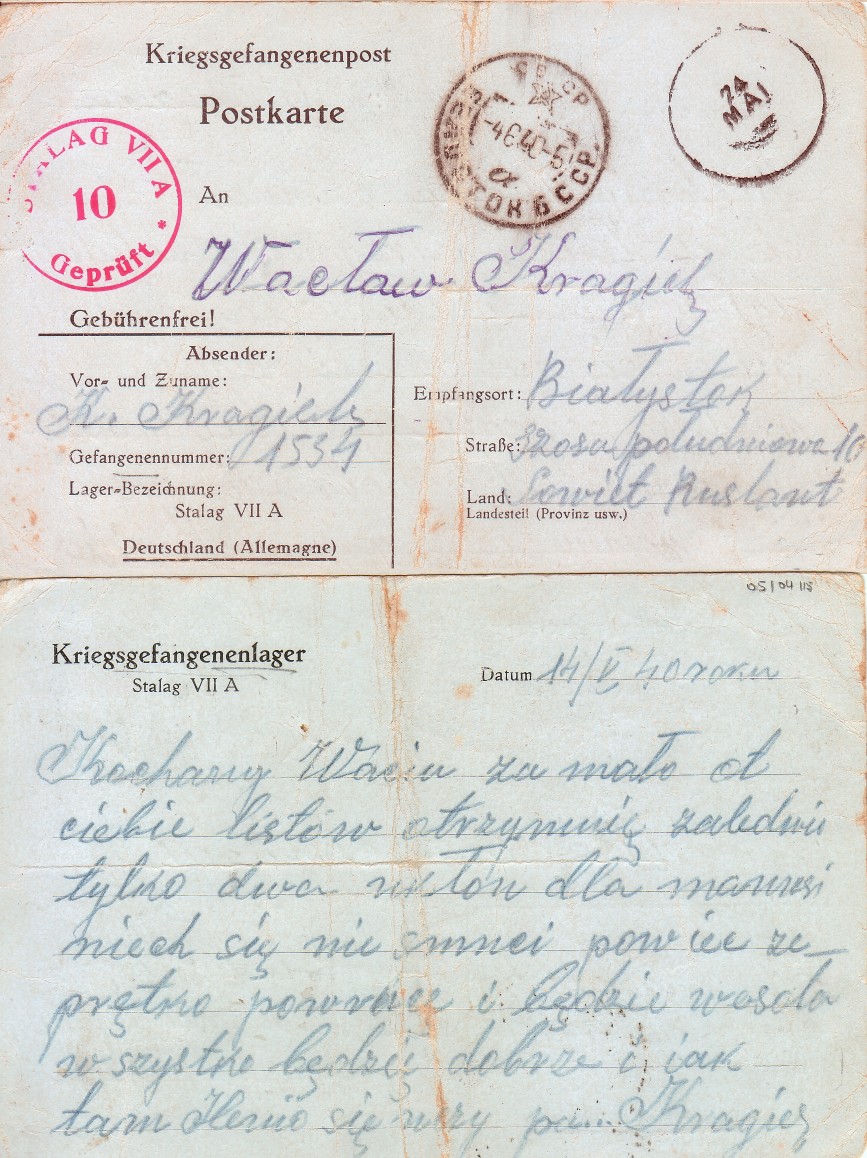 Kriegsgefangenenpost
Postkarte
STALAG VII A
10
Geprüft *
-4 6 40-
СТОК БССР.
24
MAI
An
Wacław Kragiel
Gebührenfrei!
Absender:
Vor- und Zuname:
K. Kragiel
Gefangenennummer: 1534
Lager-Bezeichnung:
Stalag VII A
Deutschland (Allemagne)
Empfangsort: Białystok
Straße: Szosa południowa 10
Land: Sowiet Ruslant
Landesteil (Provinz usw.)
05/04/115
Kriegsgefangenenlager
Stalag VII A
Datum 14/V 40 roku
Kochany Waciu za mało ot
ciebie listów otrzymuię zaledwie
tylko dwa ukłon dla mamusi
niech się nie smuci powiec ze
prętko powruce i będzie wesoła
wszystko będzie dobrze i iak
tam Henio się uczy pa... Kragiel